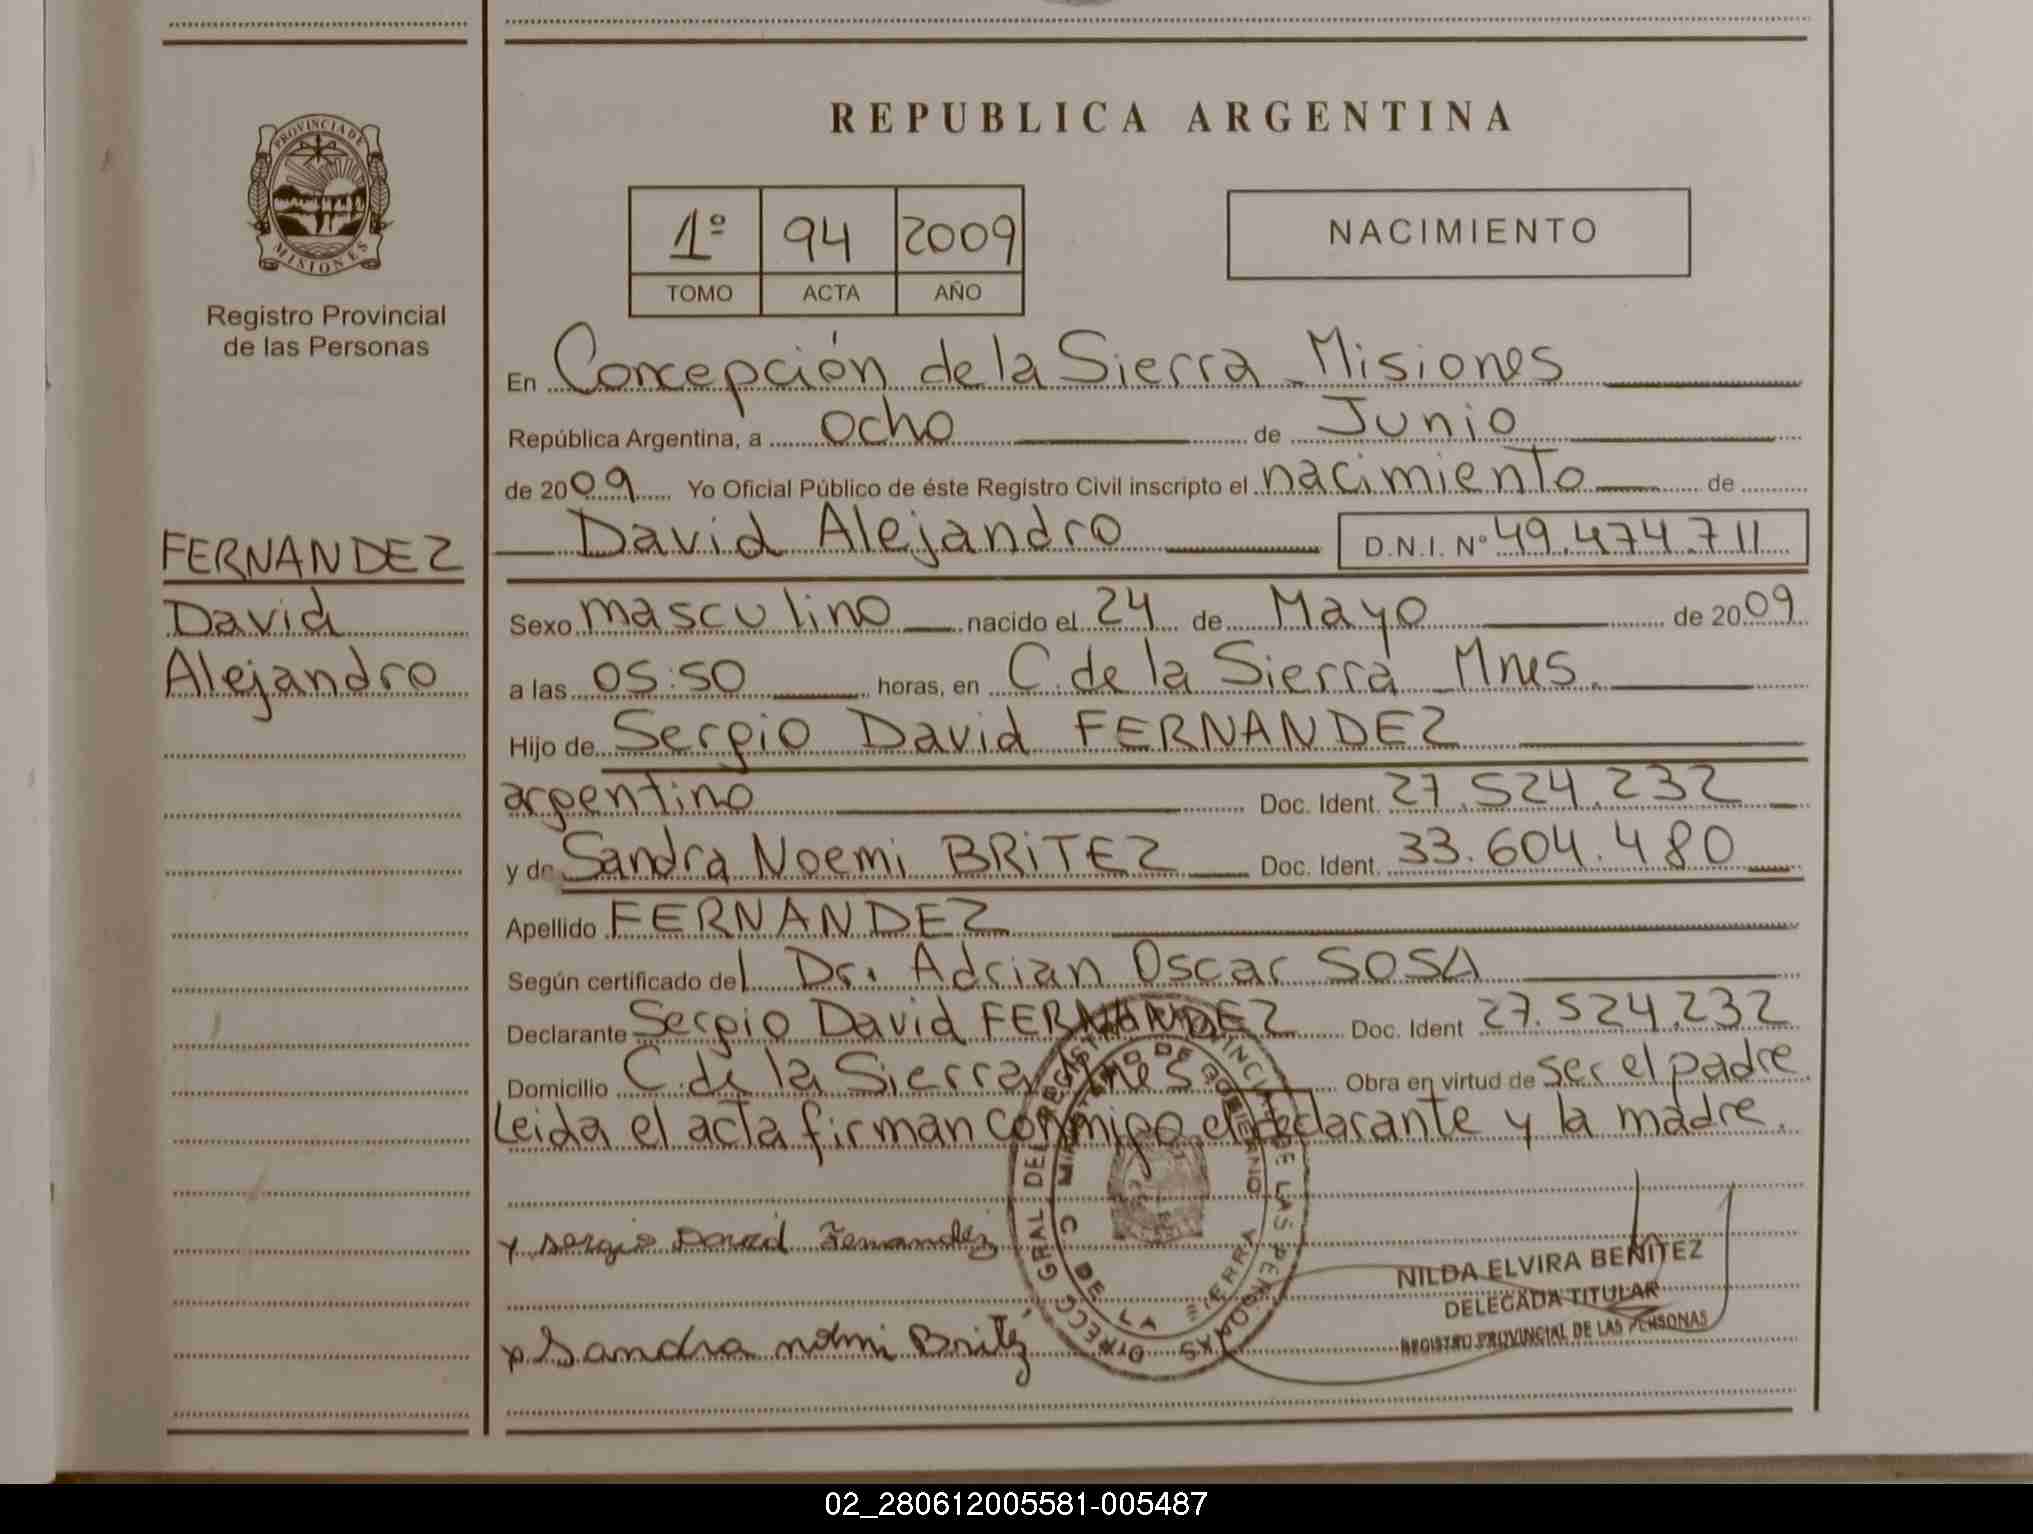 REPUBLICA ARGENTINA
PROVINCIA DE
MISIONES
Registro Provincial
de las Personas
1º 94 2009
TOMO ACTA AÑO
NACIMIENTO
En Concepción de la Sierra - Misiones
República Argentina, a ocho de Junio
de 2009 Yo Oficial Público de éste Registro Civil inscripto el nacimiento de
FERNANDEZ
David
Alejandro
David Alejandro D.N.I. Nº 49.474.711
Sexo masculino nacido el 24 de Mayo de 2009
a las 05:50 horas, en C. de la Sierra - Mnes.
Hijo de Sergio David FERNANDEZ
argentino Doc. Ident. 27.524.232
y de Sandra Noemi BRiTEZ Doc. Ident. 33.604.480
Apellido FERNANDEZ
Según certificado del Dr. Adrian Oscar SOSA
Declarante Sergio David FERNANDEZ Doc. Ident 27.524.232
Domicilio C. de la Sierra Mnes Obra en virtud de ser el padre
Leida el acta firman conmigo el declarante y la madre.
x Sergio David Fernandez
x Sandra noemi Britez
DIRECC. GRAL DEL REGISTRO PROVINCIAL DE LAS PERSONAS
MINISTERIO DE GOBIERNO
C DE LA SIERRA
NILDA ELVIRA BENITEZ
DELEGADA TITULAR
REGISTRO PROVINCIAL DE LAS PERSONAS
02_280612005581-005487